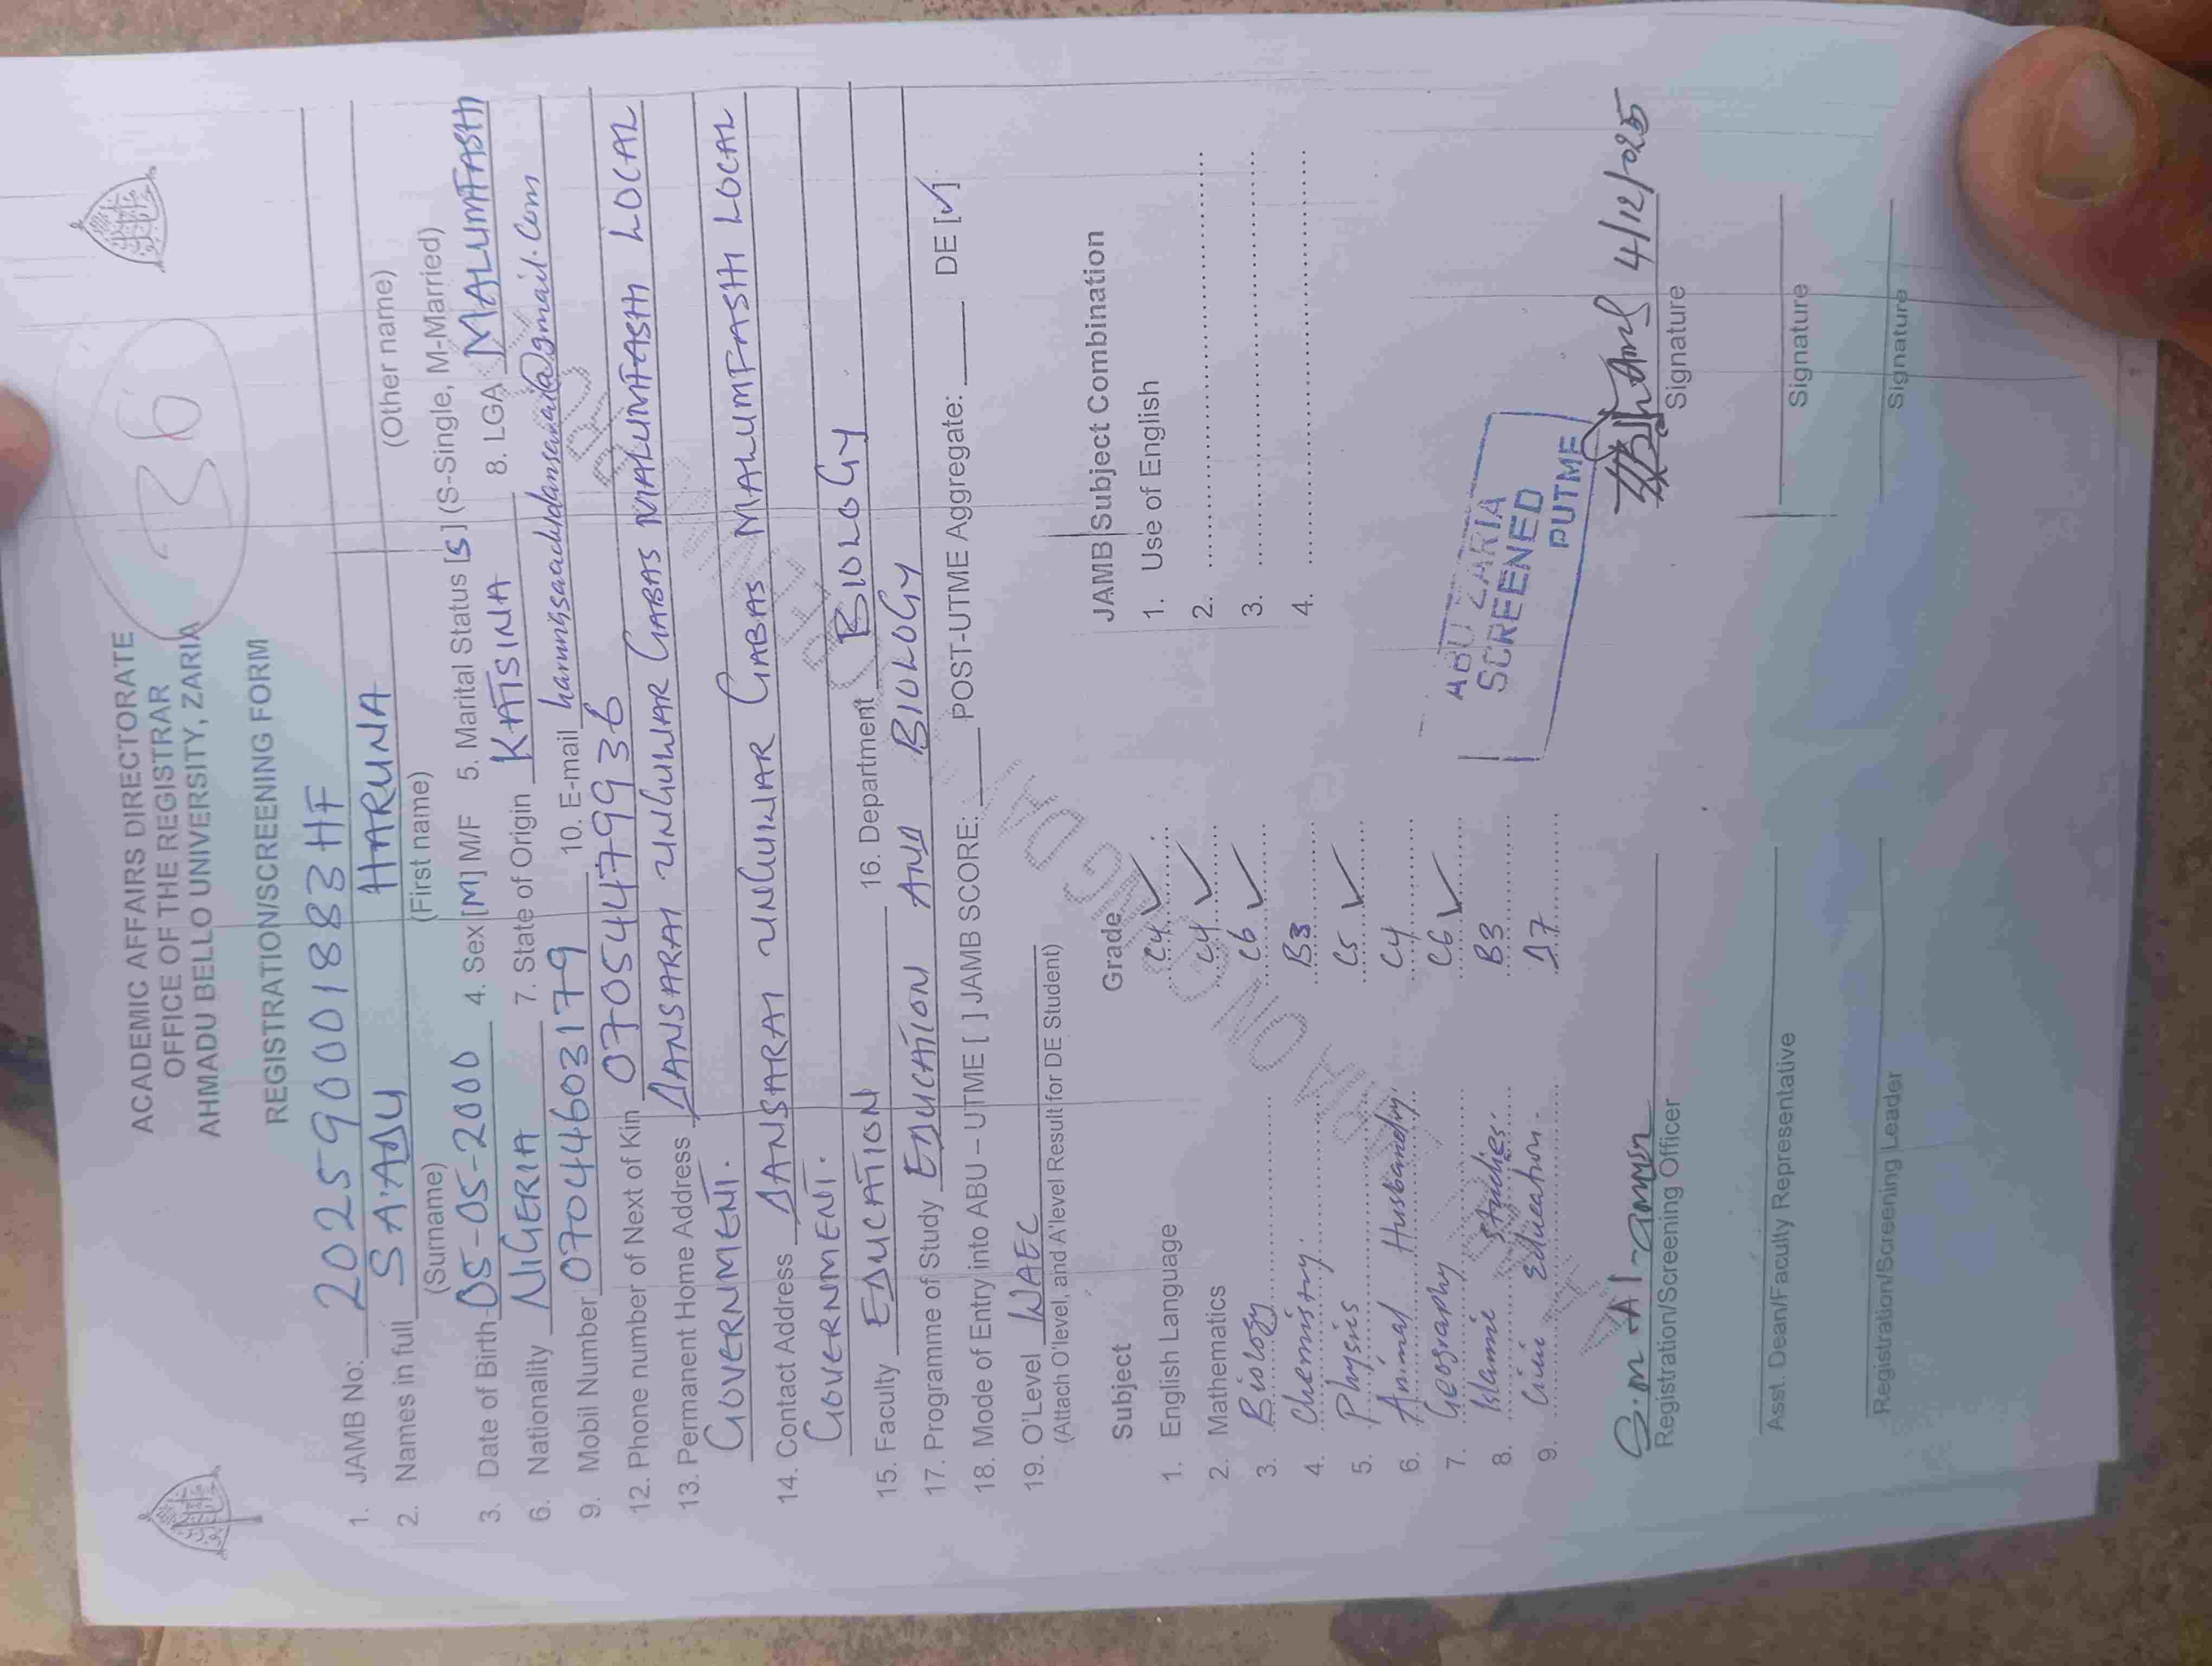 36
ACADEMIC AFFAIRS DIRECTORATE
OFFICE OF THE REGISTRAR
AHMADU BELLO UNIVERSITY, ZARIA
REGISTRATION/SCREENING FORM
1. JAMB No: 202590001883HF
2. Names in full SA'ADU HARUNA
(Surname) (First name) (Other name)
3. Date of Birth 05-05-2000 4. Sex [M] M/F 5. Marital Status [S] (S-Single, M-Married)
6. Nationality NIGERIA 7. State of Origin KATSINA 8. LGA MALUMFASHI
9. Mobil Number 07044603179 10. E-mail
12. Phone number of Next of Kin 07054479936
13. Permanent Home Address DANSARAI UNGUWAR GABAS MALUMFASHI LOCAL
GOVERNMENT.
14. Contact Address DANSARAI UNGUWAR GABAS MALUMFASHI LOCAL
GOVERNMENT.
15. Faculty EDUCATION 16. Department BIOLOGY
17. Programme of Study EDUCATION AND BIOLOGY
18. Mode of Entry into ABU – UTME [ ] JAMB SCORE: POST-UTME Aggregate: DE [✓]
19. O'Level WAEC
(Attach O'level, and A'level Result for DE Student)
Subject Grade JAMB Subject Combination
1. English Language C4 ✓ 1. Use of English
2. Mathematics C4 ✓ 2.
3. Biology C6 ✓ 3.
4. Chemistry. B3 4.
5. Physics C5 ✓
6. Animal Husbandry. C4
7. Geography C6 ✓
8. Islamic Studies. B3
9. Civic Education. D7
ABU ZARIA
SCREENED
PUTME
S.M Al-amin 4/12/025
Registration/Screening Officer Signature
Asst. Dean/Faculty Representative Signature
Registration/Screening Leader Signature